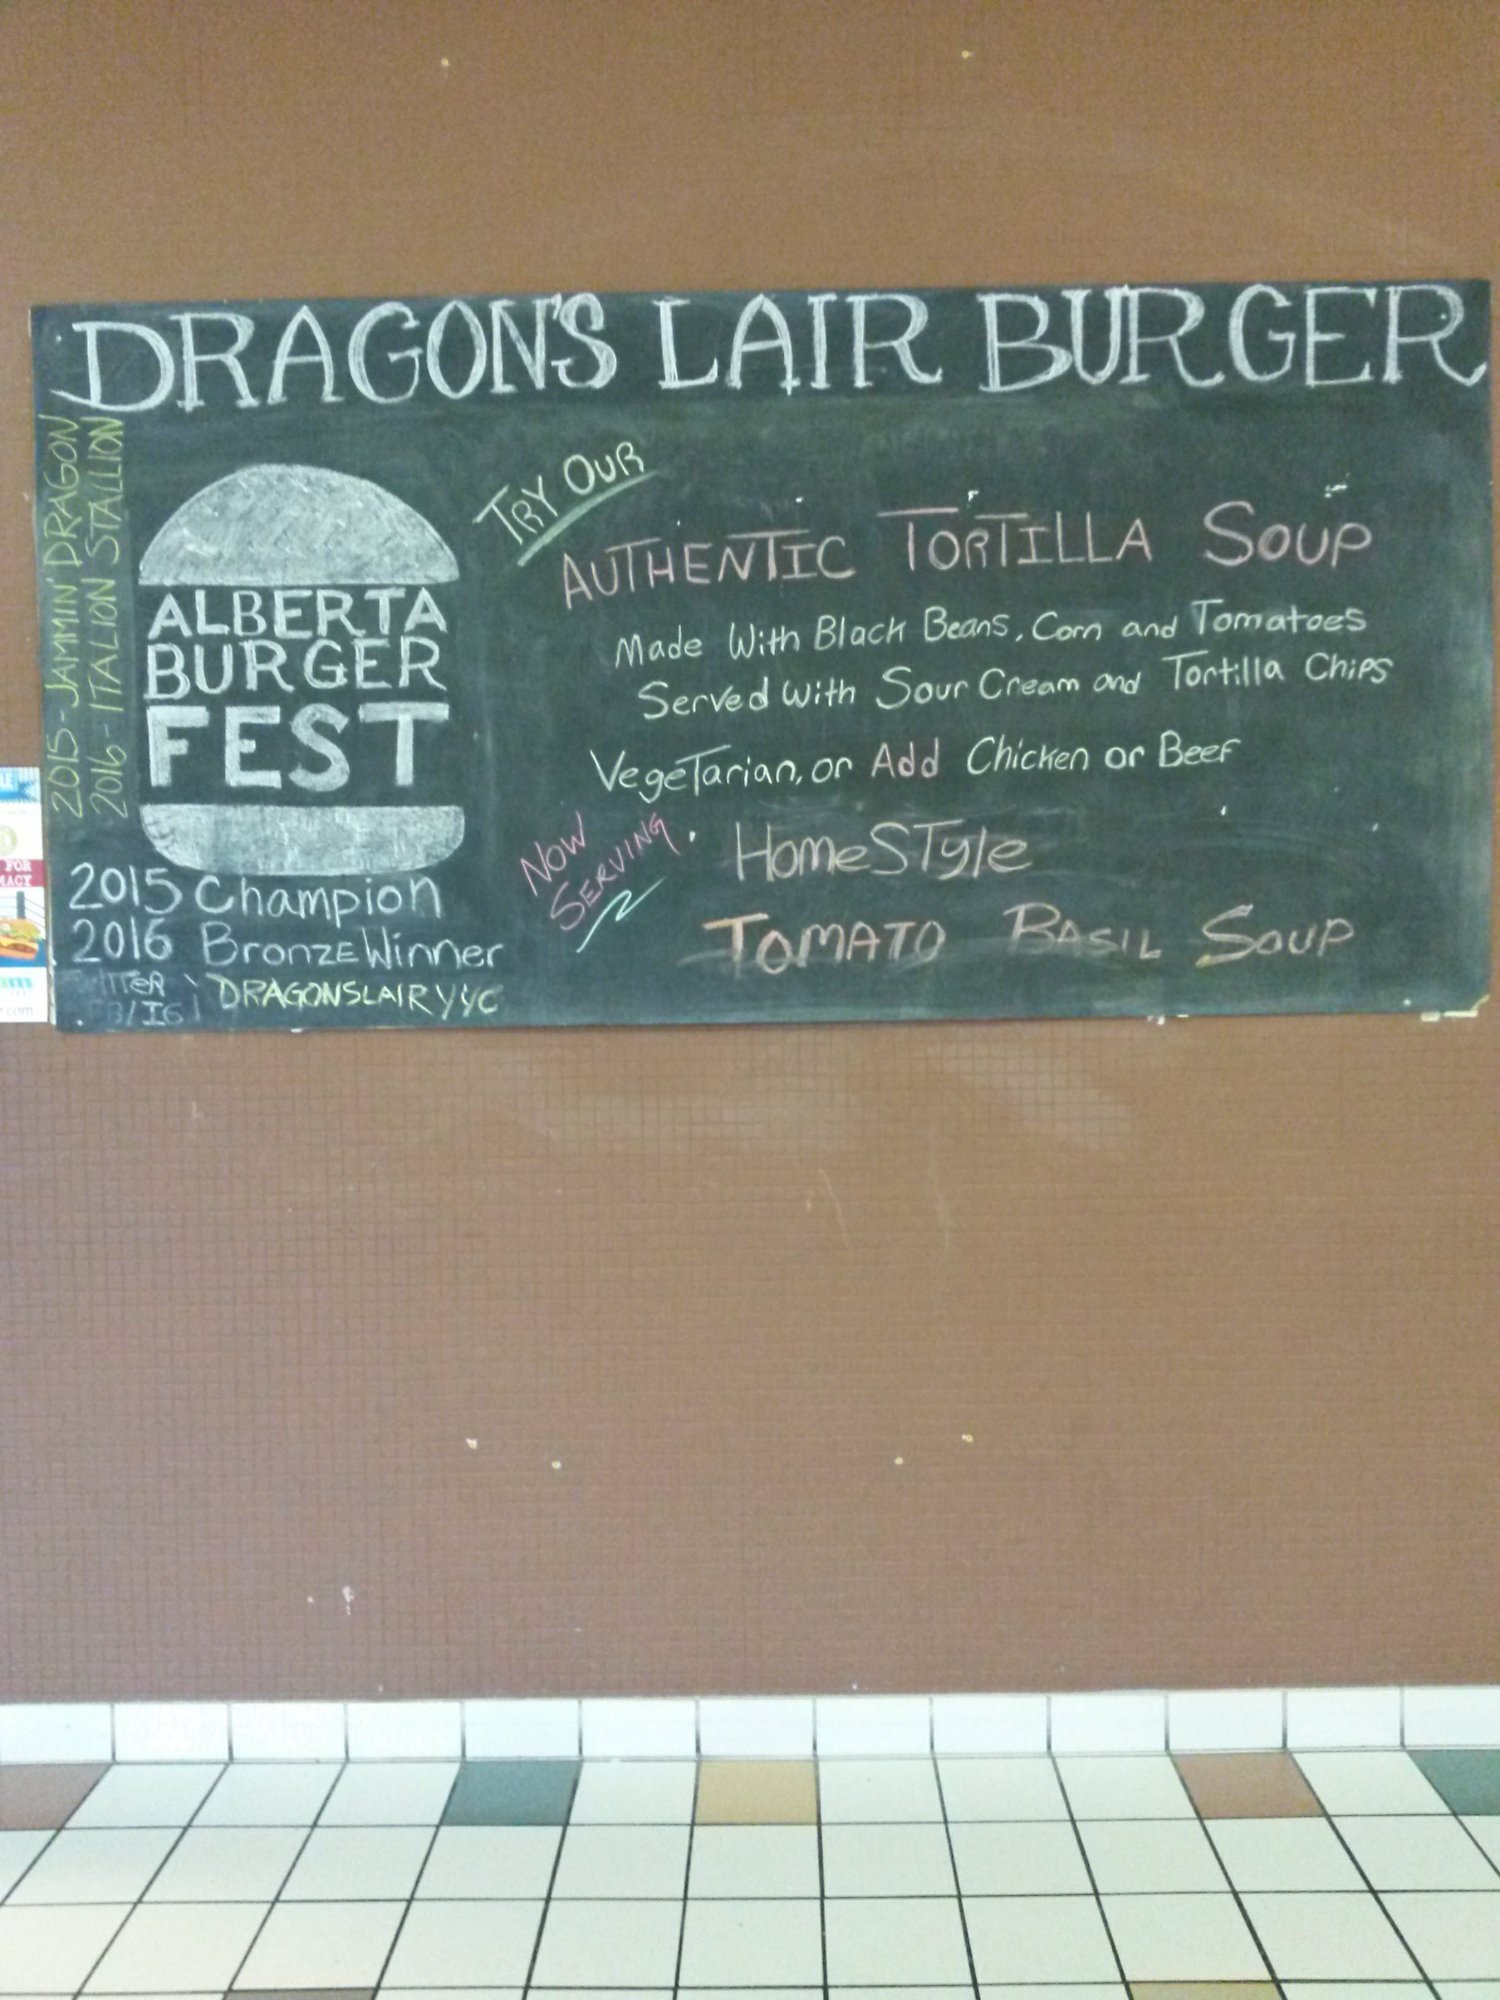 DRAGON'S LAIR BURGER
2015 - JAMMIN' DRAGON
2016 - ITALION STALLION
ALBERTA
BURGER
FEST
2015 Champion
2016 Bronze Winner
DRAGONSLAIRYYC
TRY OUR
AUTHENTIC TORTILLA SOUP
Made With Black Beans, Corn and Tomatoes
Served with Sour Cream and Tortilla Chips
Vegetarian, or Add Chicken or Beef
NOW
SERVING
HomeSTyle
TOMATO BASIL SOUP
FOR
.com